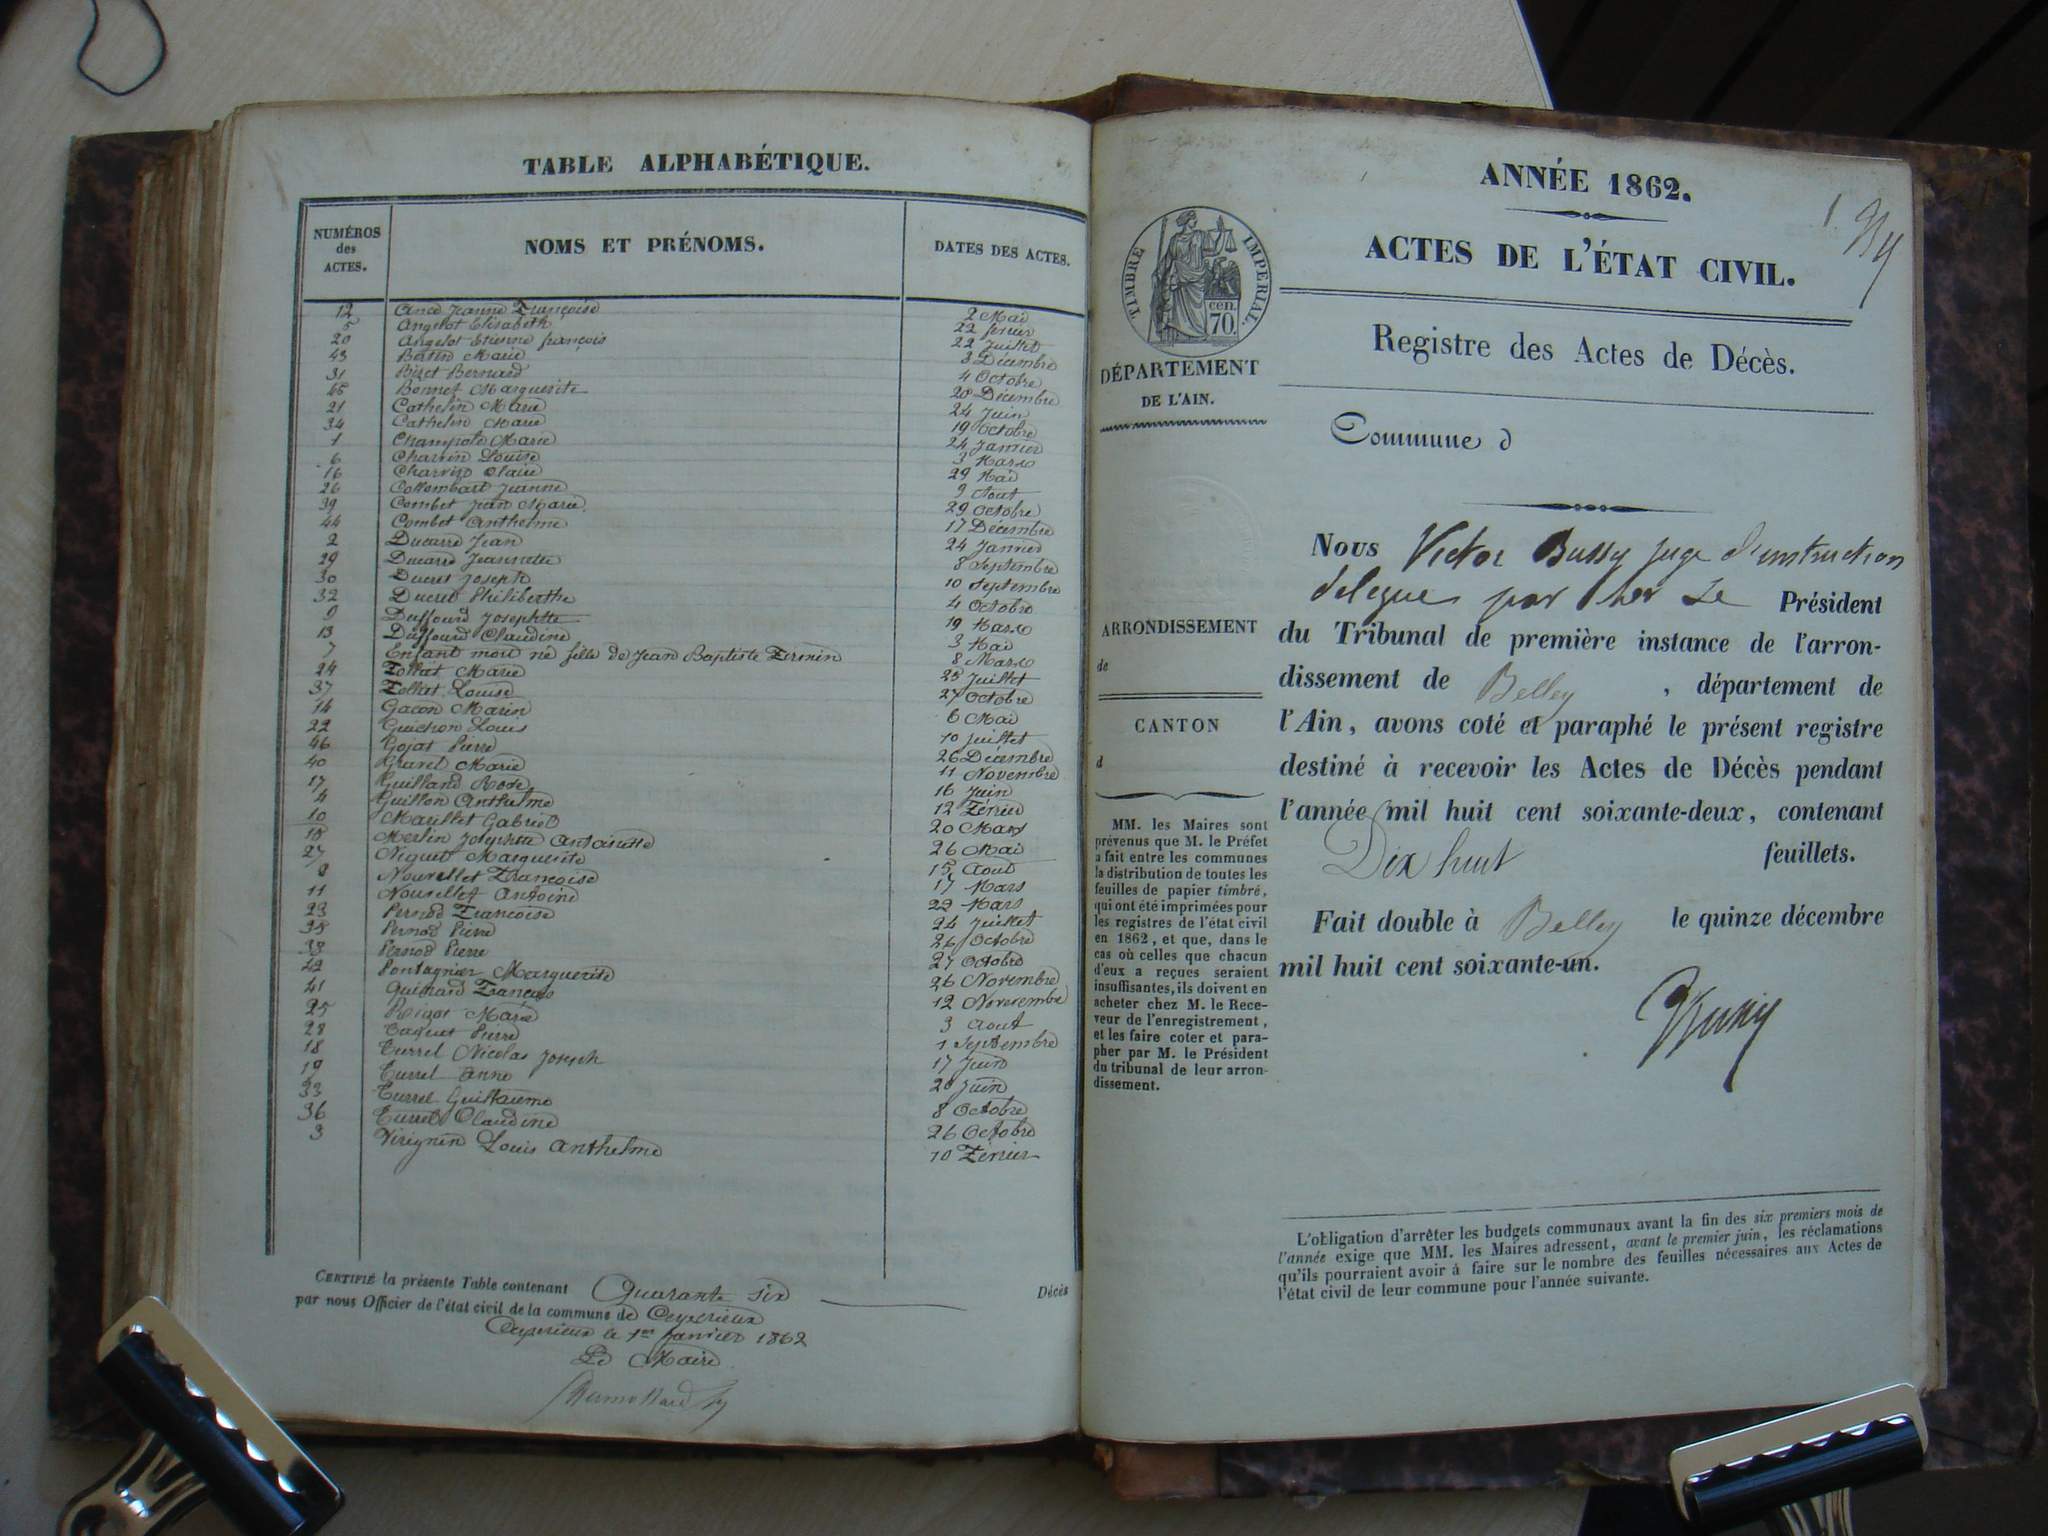 TABLE ALPHABÉTIQUE.
NUMÉROS des ACTES. NOMS ET PRÉNOMS. DATES DES ACTES.
12 Ance Jeanne Françoise 2 Mai
5 Angelot Elisabeth 22 fevrier
20 Angelot Etienne françois 22 Juillet
43 Bertin Marie 3 Décembre
31 Bizet Bernard 4 Octobre
45 Bonnet Marguerite 20 Décembre
21 Cathelin Marie 24 Juin
34 Cathelin Marie 19 Octobre
1 Marie 24 Janvier
6 Charvin Louise 3 Mars
16 Claire 29 Mai
26 Collombart Jeanne 9 Aout
39 Combet Jean Marie 29 Octobre
44 Combet Anthelme 17 Décembre
2 Ducarre Jean 24 Janvier
29 Ducarre Jeannette 8 Septembre
30 Ducret Joseph 10 Septembre
32 Ducret Philiberthe 4 Octobre
9 Duffourd Josephte 19 Mars
13 Duffourd Claudine 3 Mai
7 Enfant mort né fille de Jean Baptiste Firmin 8 Mars
24 Follret Marie 25 Juillet
37 Follret Louise 27 Octobre
14 Gacon Marin 6 Mai
22 Guichon Louis 10 Juillet
46 Gojat Pierre 26 Décembre
40 Gravel Marie 11 Novembre
17 Guilland Rose 16 Juin
4 Guillon Anthelme 12 Février
10 Marillet Gabriel 20 Mars
15 Merlin Josephtte Antoinette 26 Mai
27 Niquet Marguerite 15 Aout
8 Nourellet Françoise 17 Mars
11 Nourellet Antoine 22 Mars
23 Pernod Françoise 24 Juillet
35 Pernod Pierre 26 Octobre
38 Pernod Pierre 27 Octobre
42 Pontagnier Marguerite 26 Novembre
41 Quinard François 12 Novembre
25 Roizot Marie 3 Aout
28 Taquet Pierre 1 Septembre
18 Turrel Nicolas Joseph 17 Juin
19 Turrel Anne 20 Juin
33 Turrel Guillaume 8 Octobre
36 Turrel Claudine 26 Octobre
3 Virignin Louis Anthelme 10 Février
CERTIFIÉ la présente Table contenant Quarante six Décès
par nous Officier de l'état civil de la commune de Ceyzerieux
Ceyzerieux le 1er Janvier 1862
Le Maire
ANNÉE 1862.
1
ACTES DE L'ÉTAT CIVIL.
Registre des Actes de Décès.
Commune d
TIMBRE IMPÉRIAL.
cen.
70.
DÉPARTEMENT
DE L'AIN.
ARRONDISSEMENT
de
CANTON
d
MM. les Maires sont
prévenus que M. le Préfet
a fait entre les communes
la distribution de toutes les
feuilles de papier timbré,
qui ont été imprimées pour
les registres de l'état civil
en 1862, et que, dans le
cas où celles que chacun
d'eux a reçues seraient
insuffisantes, ils doivent en
acheter chez M. le Rece-
veur de l'enregistrement,
et les faire coter et para-
pher par M. le Président
du tribunal de leur arron-
dissement.
Nous Victor Bussy juge d'instruction
delegue par Mr Le Président
du Tribunal de première instance de l'arron-
dissement de Belley , département de
l'Ain, avons coté et paraphé le présent registre
destiné à recevoir les Actes de Décès pendant
l'année mil huit cent soixante-deux, contenant
Dix huit feuillets.
Fait double à Belley le quinze décembre
mil huit cent soixante-un.
L'obligation d'arrêter les budgets communaux avant la fin des six premiers mois de
l'année exige que MM. les Maires adressent, avant le premier juin, les réclamations
qu'ils pourraient avoir à faire sur le nombre des feuilles nécessaires aux Actes de
l'état civil de leur commune pour l'année suivante.